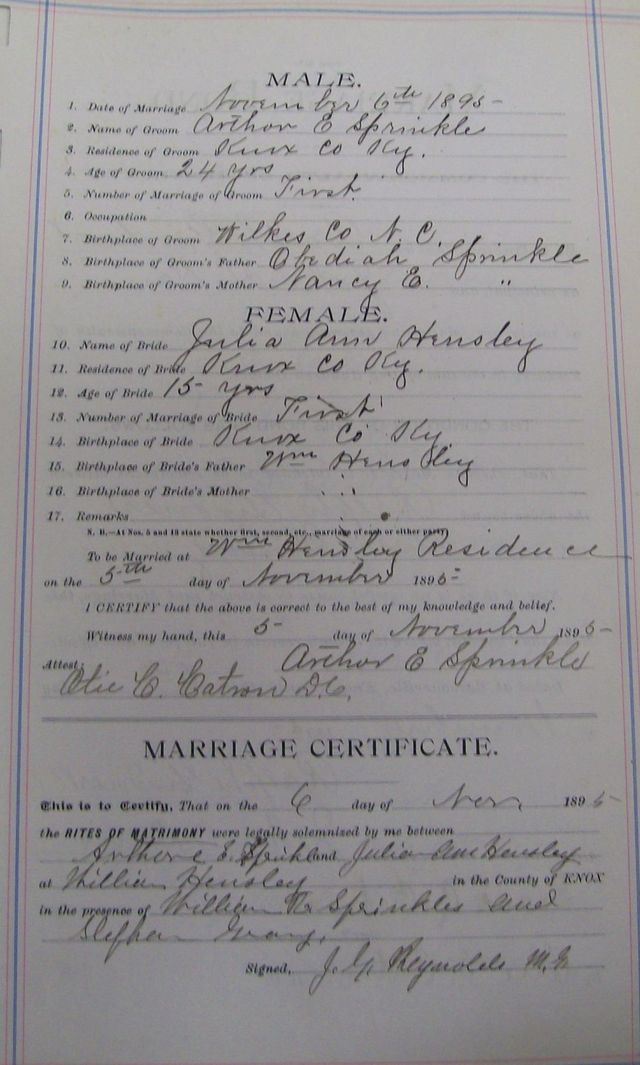 MALE.
1. Date of Marriage November 6th 1895
2. Name of Groom Arthor E Sprinkle
3. Residence of Groom Knox Co Ky.
4. Age of Groom 24 yrs
5. Number of Marriage of Groom First
6. Occupation
7. Birthplace of Groom Wilkes Co N. C.
8. Birthplace of Groom's Father Obediah Sprinkle
9. Birthplace of Groom's Mother Nancy E. "
FEMALE.
10. Name of Bride Julia Ann Hensley
11. Residence of Bride Knox Co Ky.
12. Age of Bride 15 yrs
13. Number of Marriage of Bride First
14. Birthplace of Bride Knox Co Ky
15. Birthplace of Bride's Father Wm Hensley
16. Birthplace of Bride's Mother
17. Remarks
N. B.—At Nos. 5 and 13 state whether first, second, etc., marriage of each or either party
To be Married at Wm Hensley Residence
on the 5th day of November 1895
I CERTIFY that the above is correct to the best of my knowledge and belief.
Witness my hand, this 5 day of November 1895
Arthor E Sprinkle
Attest:
Otie C. Catron D.C.
MARRIAGE CERTIFICATE.
This is to Certify, That on the 6 day of Nov. 1895
the RITES OF MATRIMONY were legally solemnized by me between
E. and Julia Ann Hensley
at William Hensley in the County of KNOX
in the presence of William Sprinkles and
Signed, J. Reynolds M.G